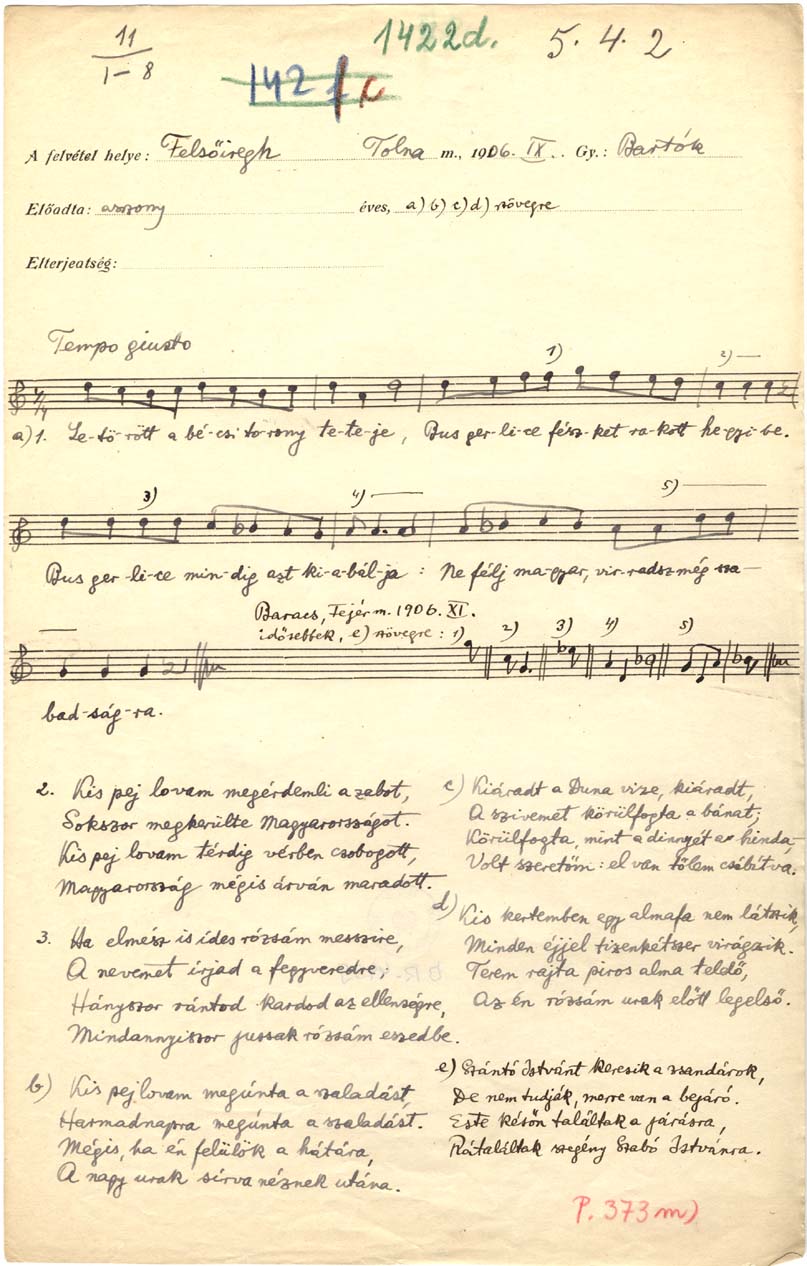 11
I–8
1422d.
5. 4. 2
142 f c
A felvétel helye: Felsőiregh Tolna m., 1906. IX. Gy.: Bartók
Előadta: asszony éves, a) b) c) d) szövegre
Elterjeatség:
Tempo giusto
1) 2)
a) 1. Le-tö-rött a bé-csi to-rony te-te-je, Bus ger-li-ce fész-ket ra-kott he-gyi-be.
3) 4) 5)
Bus ger-li-ce min-dig azt ki-a-bál-ja: Ne félj ma-gyar, vir-radsz még sza-
Baracs, Fejér m. 1906. XI.
idősebbek, e) szövegre: 1) 2) 3) 4) 5)
bad-ság-ra.
2. Kis pej lovam megérdemli a zabot,
Sokszor megkerülte Magyarországot.
Kis pej lovam térdig vérben csobogott,
Magyarország mégis árván maradott.
3. Ha elmész is ides rózsám messzire,
A nevemet írjad a fegyveredre;
Hányszor rántod kardod az ellenségre,
Mindannyiszor jussak rózsám eszedbe.
b) Kis pej lovam megúnta a szaladást,
Harmadnapra megúnta a szaladást.
Mégis, ha én felülök a hátára,
A nagy urak sírva néznek utána.
c) Kiáradt a Duna vize, kiáradt,
A szivemet körülfogta a bánat;
Körülfogta, mint a dinnyét a hinda,
Volt szeretőm: el van tőlem csábítva.
d) Kis kertemben egy almafa nem látszik,
Minden éjjel tizenkétszer virágzik.
Terem rajta piros alma teldő,
Az én rózsám urak előtt legelső.
e) Szántó Istvánt keresik a zsandárok,
De nem tudják, merre van a bejáró.
Este későn találtak a járásra,
Rátaláltak szegény Szabó Istvánra.
P. 373 m)